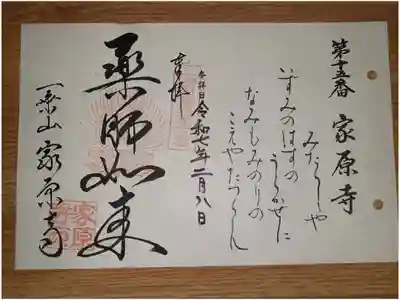 第十五番 家原寺
みたらしや
いずみのはすの
うらかせに
なみもみのりの
こえやたつらん
参拝日 令和七年二月八日
奉拝
薬師如来
一乗山 家原寺